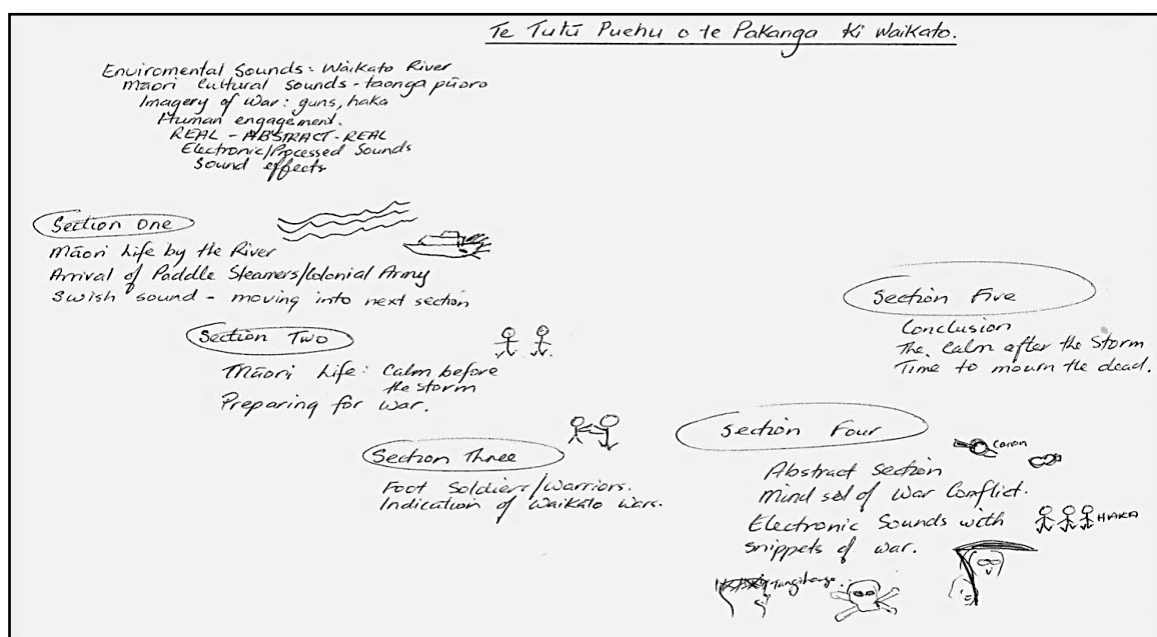 Te Tutū Puehu o te Pakanga ki Waikato.
Enviromental Sounds: Waikato River
Māori Cultural Sounds - taonga pūoro
Imagery of War: guns, haka
Human engagement.
REAL - ABSTRACT - REAL
Electronic/Processed Sounds
Sound effects
Section One
Māori Life by the River
Arrival of Paddle Steamers/Colonial Army
Swish sound - moving into next section
Section Two
Māori Life: Calm before
the storm
Preparing for war.
Section Three
Foot Soldiers/Warriors.
Indication of Waikato Wars.
Section Four
Canon
Abstract Section
Mind set of War Conflict.
Electronic Sounds with
HAKA
snippets of war.
Section Five
Conclusion
The Calm after the Storm
Time to mourn the dead.